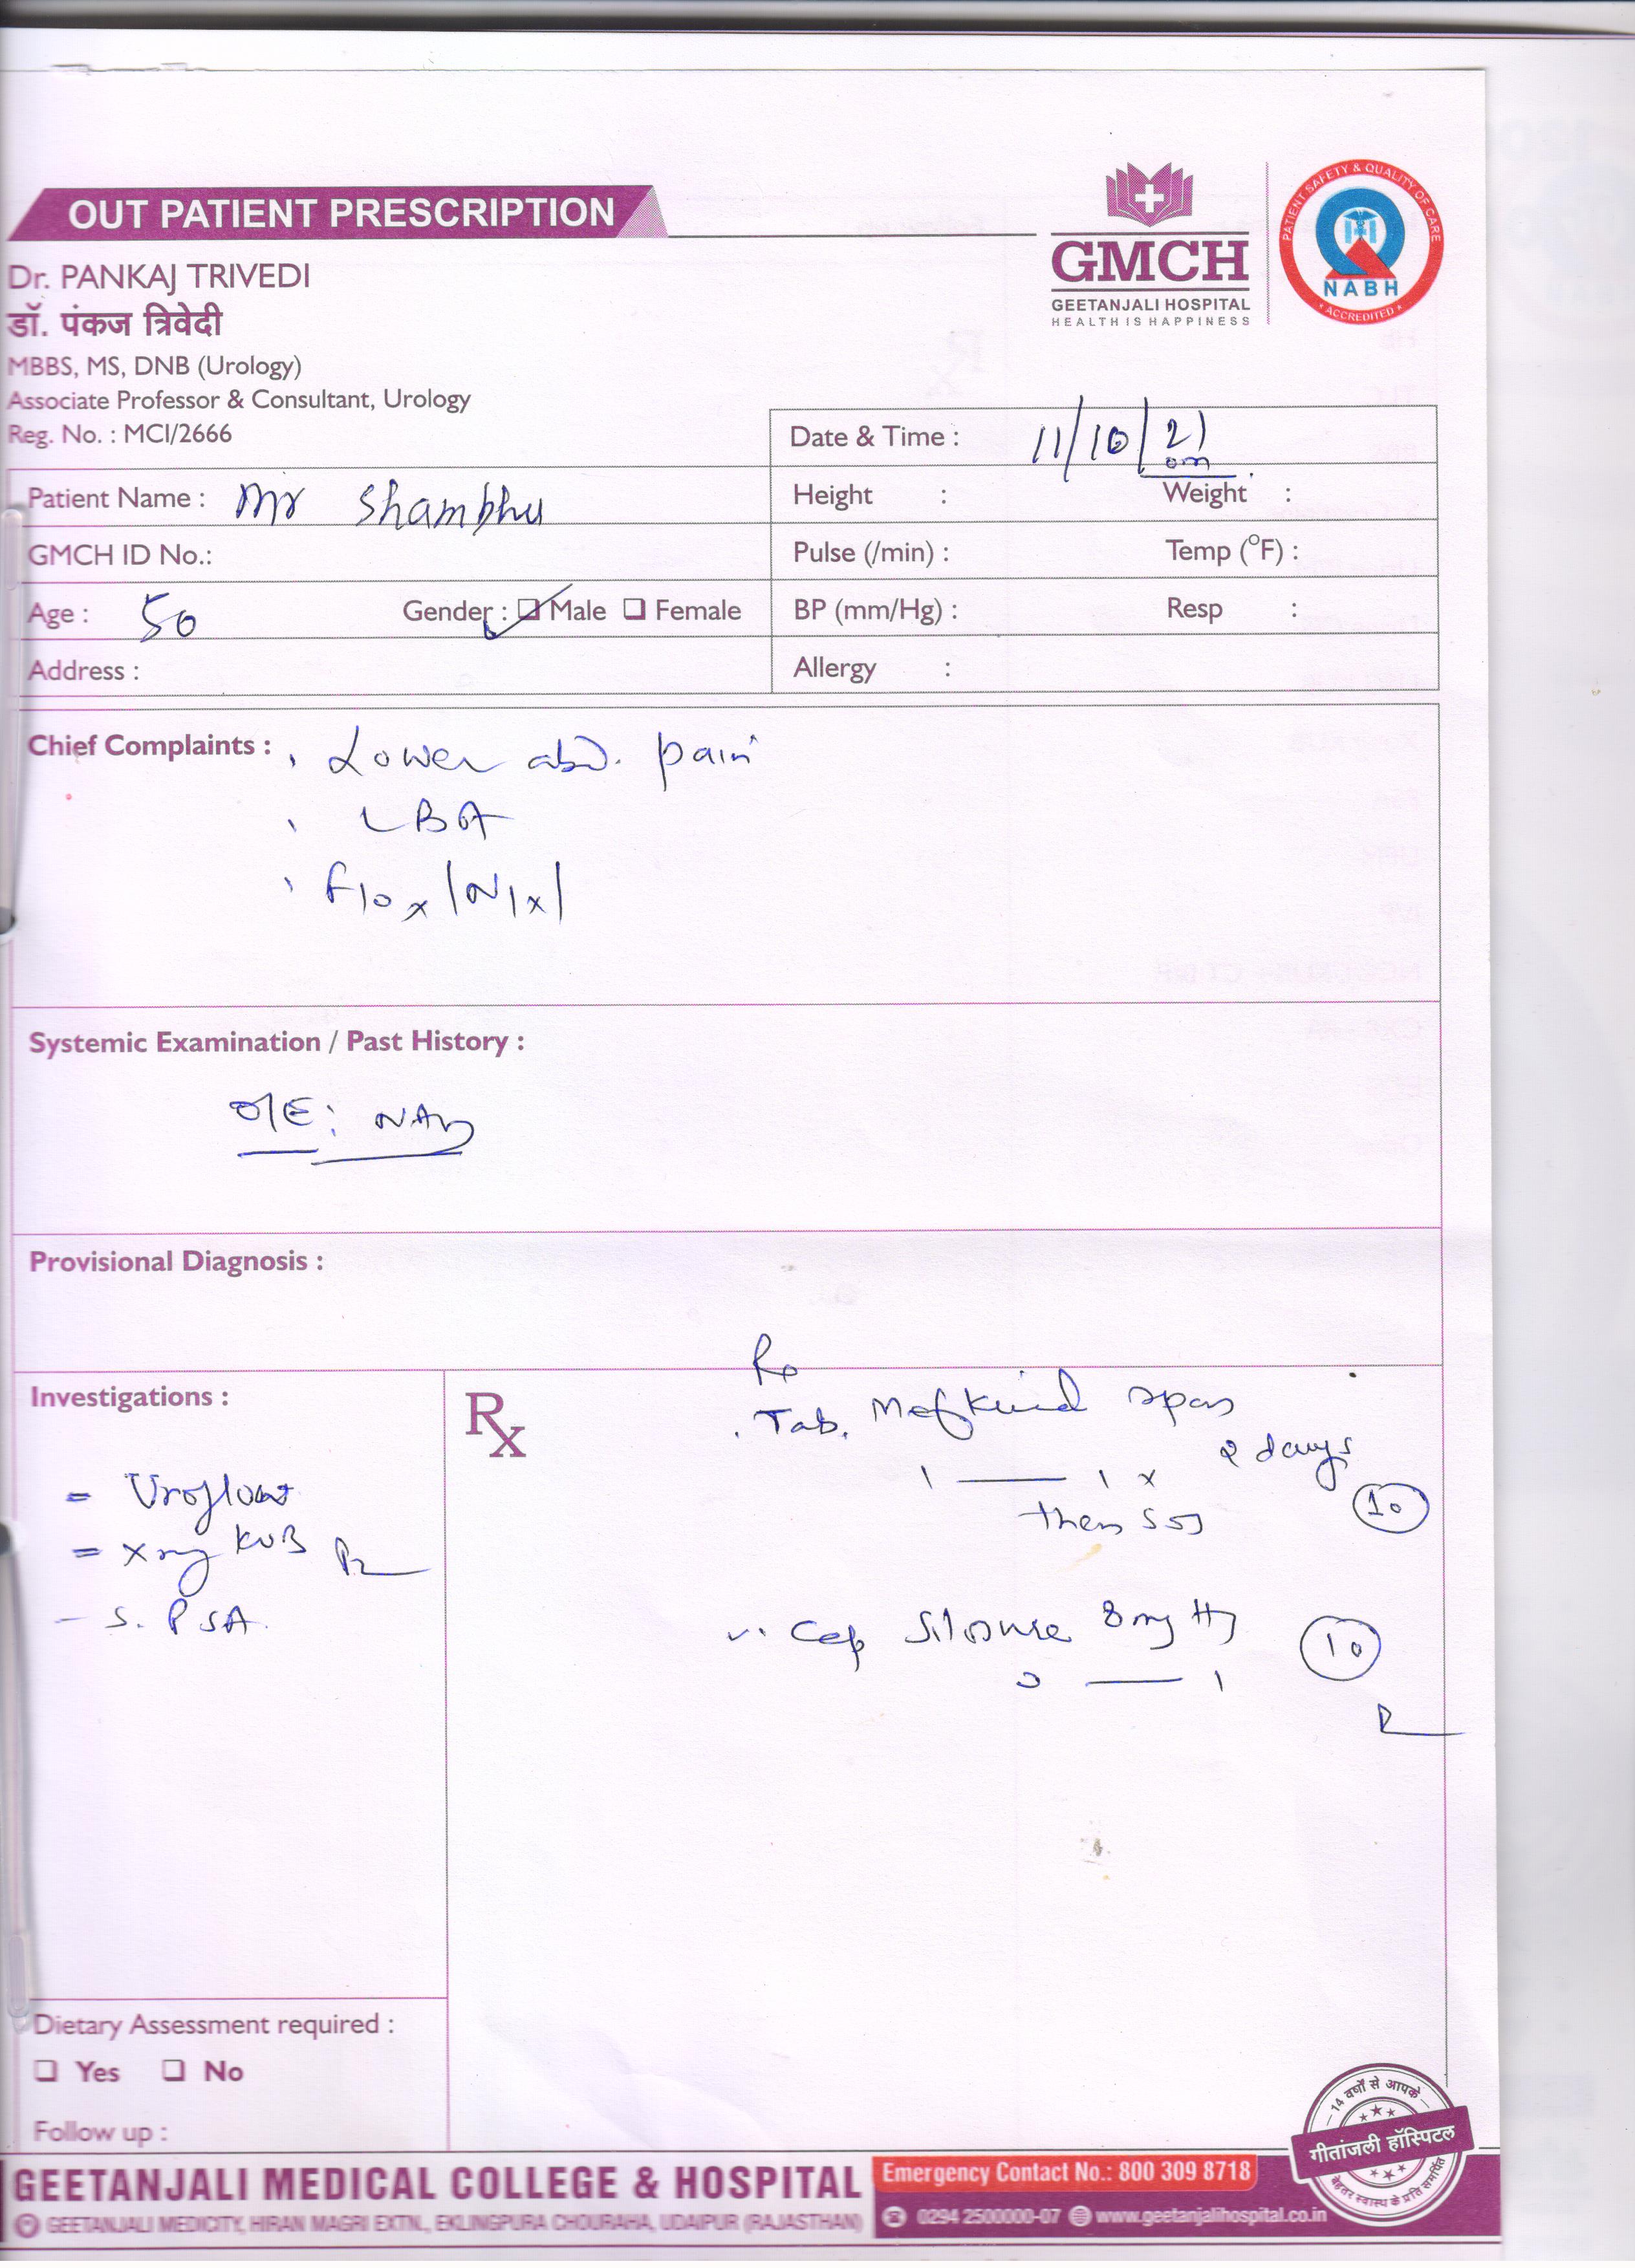 OUT PATIENT PRESCRIPTION
GMCH
GEETANJALI HOSPITAL
HEALTH IS HAPPINESS
PATIENT SAFETY & QUALITY OF CARE
NABH
ACCREDITED
Dr. PANKAJ TRIVEDI
डॉ. पंकज त्रिवेदी
MBBS, MS, DNB (Urology)
Associate Professor & Consultant, Urology
Reg. No. : MCI/2666
Date & Time : 11/10/21
Patient Name : Mr Shambhu
Height : Weight :
GMCH ID No.:
Pulse (/min) : Temp (°F) :
Age : 50 Gender : Male Female
BP (mm/Hg) : Resp :
Address :
Allergy :
Chief Complaints : Lower abd. pain
LBA
Systemic Examination / Past History :
O/E: NAD
Provisional Diagnosis :
Investigations :
Rx
Rx
Tab. Mefkind spas
1 — 1 x 2 days
then SOS
10
- Xray KUB
- S. PSA
Cap 8mg
0 — 1
10
Dietary Assessment required :
Yes No
Follow up :
14 वर्षों से आपके
गीतांजली हॉस्पिटल
बेहतर स्वास्थ के प्रति समर्पित
GEETANJALI MEDICAL COLLEGE & HOSPITAL
Emergency Contact No.: 800 309 8718
GEETANJALI MEDICITY, HIRAN MAGRI EXTN., EKLINGPURA CHOURAHA, UDAIPUR (RAJASTHAN)
0294 2500000-07 www.geetanjalihospital.co.in